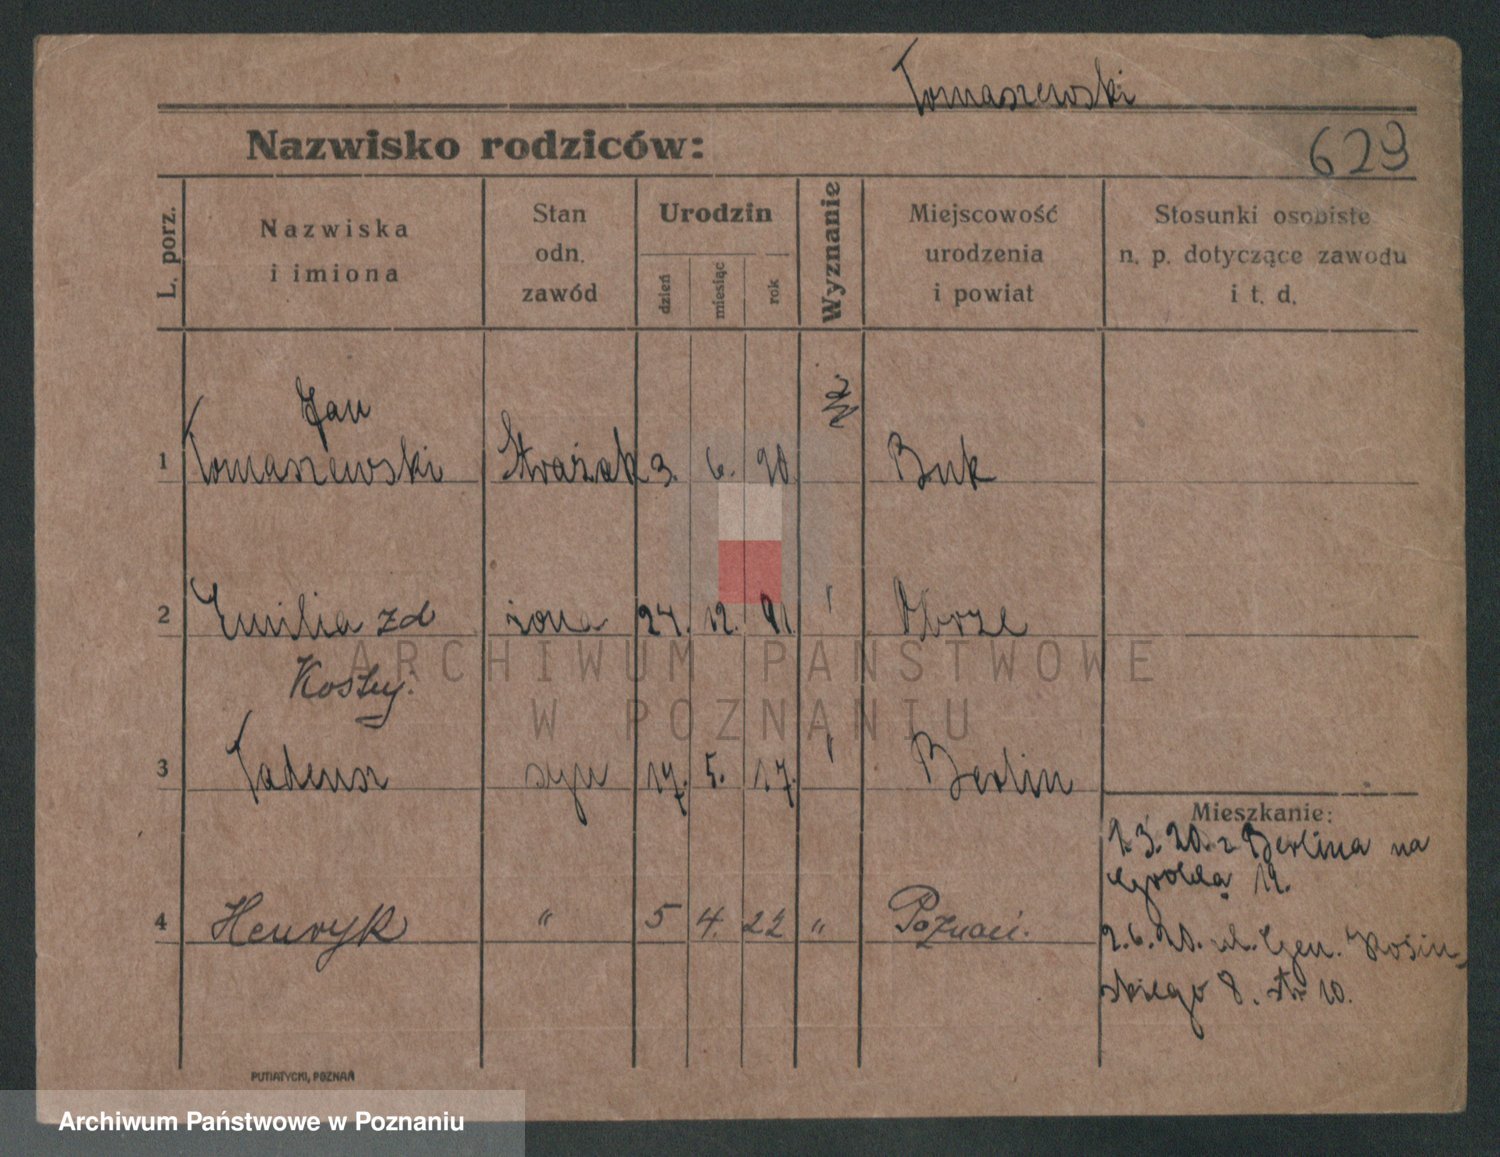 Tomaszewski
Nazwisko rodziców:
629
L. porz.
Nazwiska
i imiona
Stan
odn.
zawód
Urodzin
dzień
miesiąc
rok
Wyznanie
Miejscowość
urodzenia
i powiat
Stosunki osobiste
n. p. dotyczące zawodu
i t. d.
Jan
1 Tomaszewski Strażak 3. 6. 90 Buk
2 Emilia zd żona 24. 12. 91. " Obrze
Kosty.
3 Tadeusz syn 17. 5. 17. " Berlin
Mieszkanie:
1.3.20. z Berlina na
Groblą 19.
4 Henryk " 5 4. 22 " Poznań.
2.6.20. ul. Gen. Kosiń-
skiego 8. str 10.
PUTIATYCKI, POZNAŃ
ARCHIWUM PAŃSTWOWE
W POZNANIU
Archiwum Państwowe w Poznaniu